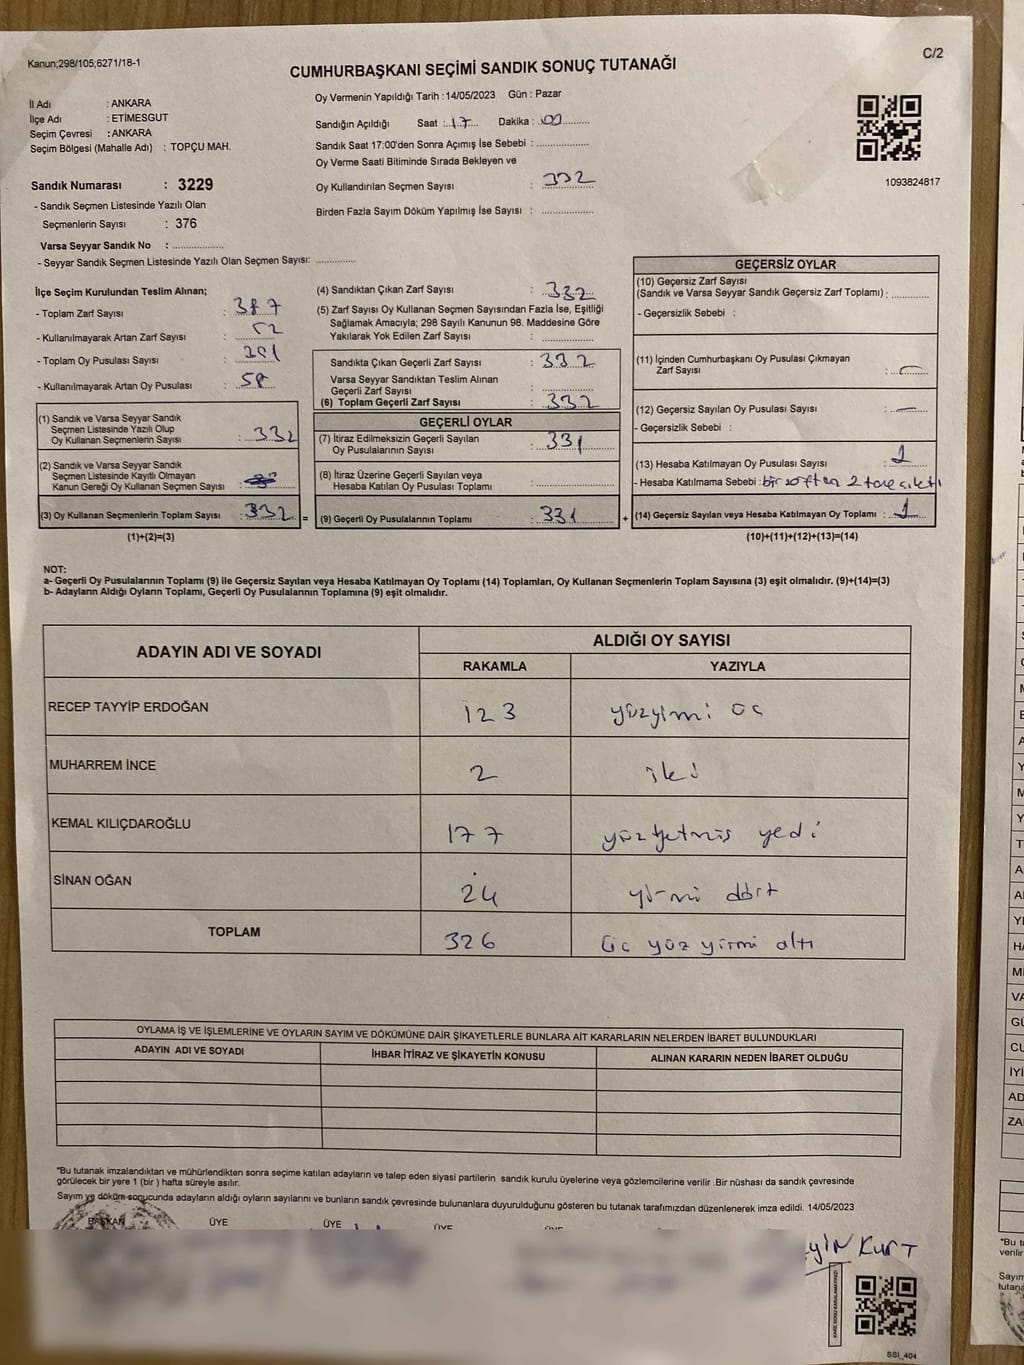 Kanun;298/105;6271/18-1
C/2
CUMHURBAŞKANI SEÇİMİ SANDIK SONUÇ TUTANAĞI
İl Adı : ANKARA
İlçe Adı : ETİMESGUT
Seçim Çevresi : ANKARA
Seçim Bölgesi (Mahalle Adı) : TOPÇU MAH.
Sandık Numarası : 3229
- Sandık Seçmen Listesinde Yazılı Olan
Seçmenlerin Sayısı : 376
Varsa Seyyar Sandık No : ..............
- Seyyar Sandık Seçmen Listesinde Yazılı Olan Seçmen Sayısı: ............
Oy Vermenin Yapıldığı Tarih : 14/05/2023 Gün : Pazar
Sandığın Açıldığı Saat : 17 Dakika : 00
Sandık Saat 17:00'den Sonra Açımış İse Sebebi : ................
Oy Verme Saati Bitiminde Sırada Bekleyen ve
Oy Kullandırılan Seçmen Sayısı : 332
Birden Fazla Sayım Döküm Yapılmış İse Sayısı : ................
1093824817
İlçe Seçim Kurulundan Teslim Alınan;
- Toplam Zarf Sayısı : 387
- Kullanılmayarak Artan Zarf Sayısı :
- Toplam Oy Pusulası Sayısı :
- Kullanılmayarak Artan Oy Pusulası :
(1) Sandık ve Varsa Seyyar Sandık
Seçmen Listesinde Yazılı Olup
Oy Kullanan Seçmenlerin Sayısı : 332
(2) Sandık ve Varsa Seyyar Sandık
Seçmen Listesinde Kayıtlı Olmayan
Kanun Gereği Oy Kullanan Seçmen Sayısı :
(3) Oy Kullanan Seçmenlerin Toplam Sayısı : 332 =
(1)+(2)=(3)
(4) Sandıktan Çıkan Zarf Sayısı : 332
(5) Zarf Sayısı Oy Kullanan Seçmen Sayısından Fazla İse, Eşitliği
Sağlamak Amacıyla; 298 Sayılı Kanunun 98. Maddesine Göre
Yakılarak Yok Edilen Zarf Sayısı : ..............
Sandıkta Çıkan Geçerli Zarf Sayısı : 332
Varsa Seyyar Sandıktan Teslim Alınan
Geçerli Zarf Sayısı : ..............
(6) Toplam Geçerli Zarf Sayısı : 332
GEÇERLİ OYLAR
(7) İtiraz Edilmeksizin Geçerli Sayılan
Oy Pusulasının Sayısı : 331
(8) İtiraz Üzerine Geçerli Sayılan veya
Hesaba Katılan Oy Pusulası Toplamı : ..............
(9) Geçerli Oy Pusulalarının Toplamı : 331 +
GEÇERSİZ OYLAR
(10) Geçersiz Zarf Sayısı
(Sandık ve Varsa Seyyar Sandık Geçersiz Zarf Toplamı) : ............
- Geçersizlik Sebebi :
(11) İçinden Cumhurbaşkanı Oy Pusulası Çıkmayan
Zarf Sayısı : –
(12) Geçersiz Sayılan Oy Pusulası Sayısı : –
- Geçersizlik Sebebi :
(13) Hesaba Katılmayan Oy Pusulası Sayısı : 1
- Hesaba Katılmama Sebebi : bir zarftan 2 tane çıktı
(14) Geçersiz Sayılan veya Hesaba Katılmayan Oy Toplamı : 1
(10)+(11)+(12)+(13)=(14)
NOT:
a- Geçerli Oy Pusulalarının Toplamı (9) ile Geçersiz Sayılan veya Hesaba Katılmayan Oy Toplamı (14) Toplamları, Oy Kullanan Seçmenlerin Toplam Sayısına (3) eşit olmalıdır. (9)+(14)=(3)
b- Adayların Aldığı Oyların Toplamı, Geçerli Oy Pusulalarının Toplamına (9) eşit olmalıdır.
ADAYIN ADI VE SOYADI
ALDIĞI OY SAYISI
RAKAMLA YAZIYLA
RECEP TAYYİP ERDOĞAN 123 yüzyirmi üç
MUHARREM İNCE 2 iki
KEMAL KILIÇDAROĞLU 177 yüzyetmiş yedi
SİNAN OĞAN 24 yirmi dört
TOPLAM 326 üç yüz yirmi altı
OYLAMA İŞ VE İŞLEMLERİNE VE OYLARIN SAYIM VE DÖKÜMÜNE DAİR ŞİKAYETLERLE BUNLARA AİT KARARLARIN NELERDEN İBARET BULUNDUKLARI
ADAYIN ADI VE SOYADI İHBAR İTİRAZ VE ŞİKAYETİN KONUSU ALINAN KARARIN NEDEN İBARET OLDUĞU
*Bu tutanak imzalandıktan ve mühürlendikten sonra seçime katılan adayların ve talep eden siyasi partilerin sandık kurulu üyelerine veya gözlemcilerine verilir .Bir nüshası da sandık çevresinde
görülecek bir yere 1 (bir ) hafta süreyle asılır.
Sayım ve döküm sonucunda adayların aldığı oyların sayılarını ve bunların sandık çevresinde bulunanlara duyurulduğunu gösteren bu tutanak tarafımızdan düzenlenerek imza edildi. 14/05/2023
BAŞKAN ÜYE ÜYE ÜYE
KURT
SSI_404